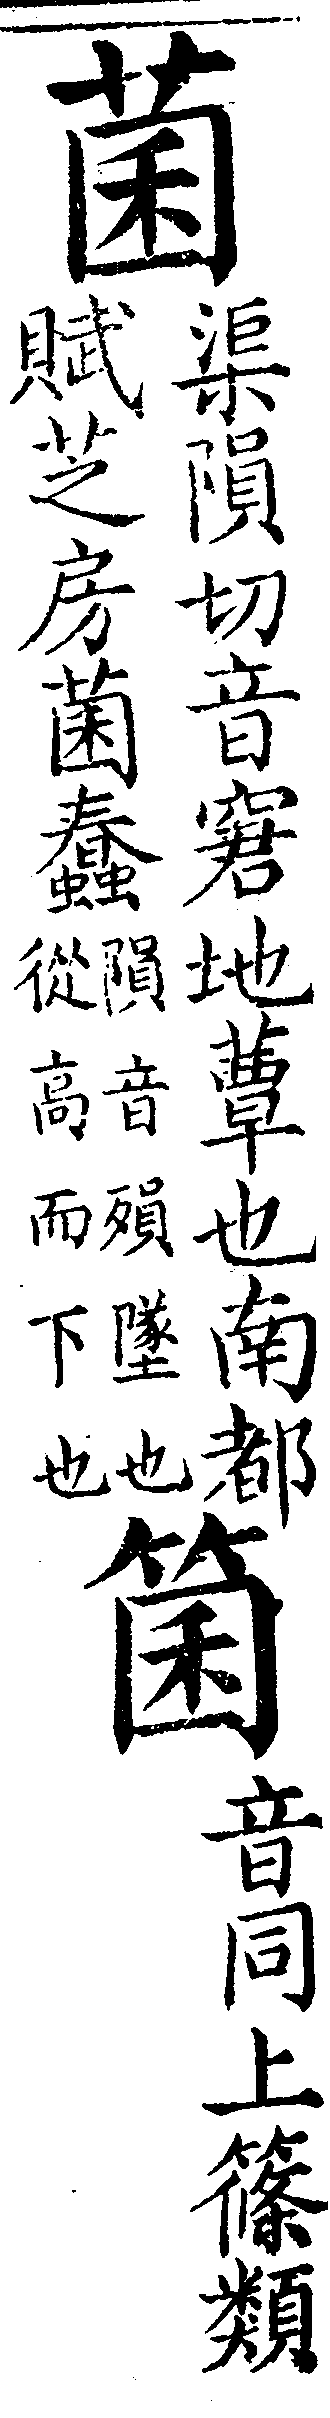 菌
渠隕切音窘地蕈也南都
賦芝房菌蠢
隕音殞墜也
從高而下也
箘
音同上篠類